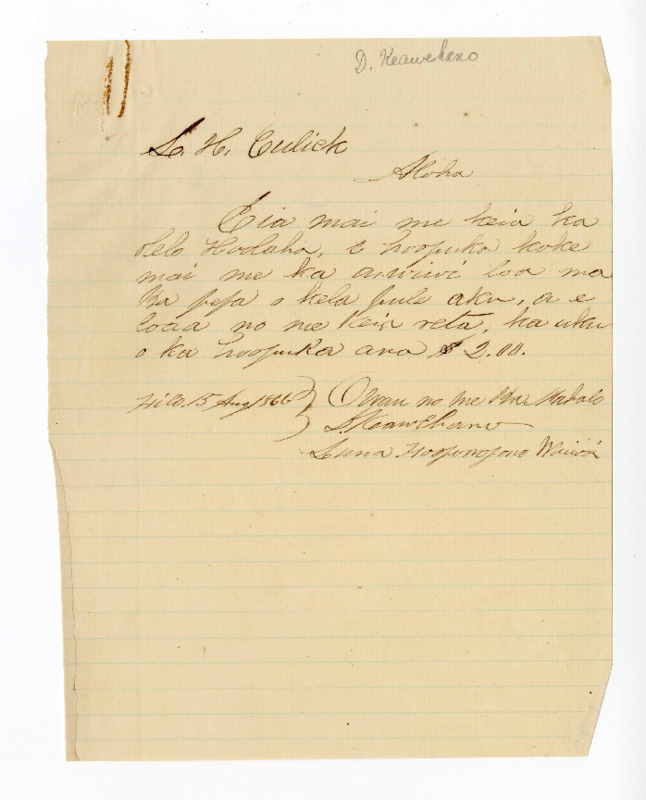 D. Keawehano
L. H. Gulick
Aloha
Eia mai me keia ka
olelo Hoolaha, e hoopuka koke
mai me ka awiwi loa ma
Ka pepa o kela pule aku, a e
loaa no me keia reta, ka uku
o ka hoopuka ana $ 2.00.
Hilo. 15 Aug 1866 } Owau no me Ka Mahalo
D. Keawehano
Luna Hooponopono Waiwai